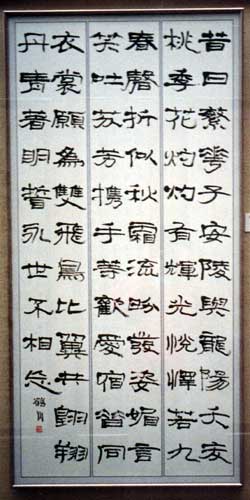 昔日繁華子安陵與龍陽夭夭
桃李花灼灼有輝光悅懌若九
春磬折似秋霜流盼發姿媚言
笑吐芬芳攜手等歡愛宿昔同
衣裳願為雙飛鳥比翼共翱翔
丹青著明誓永世不相忘